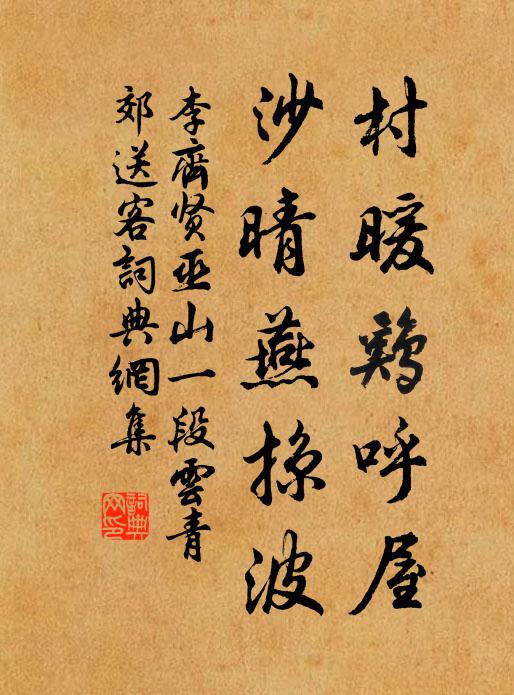 村暖鷄呼屋
沙晴燕掠波
李齊贤巫山一段雲青
郊送客詞典網集
詞典网印